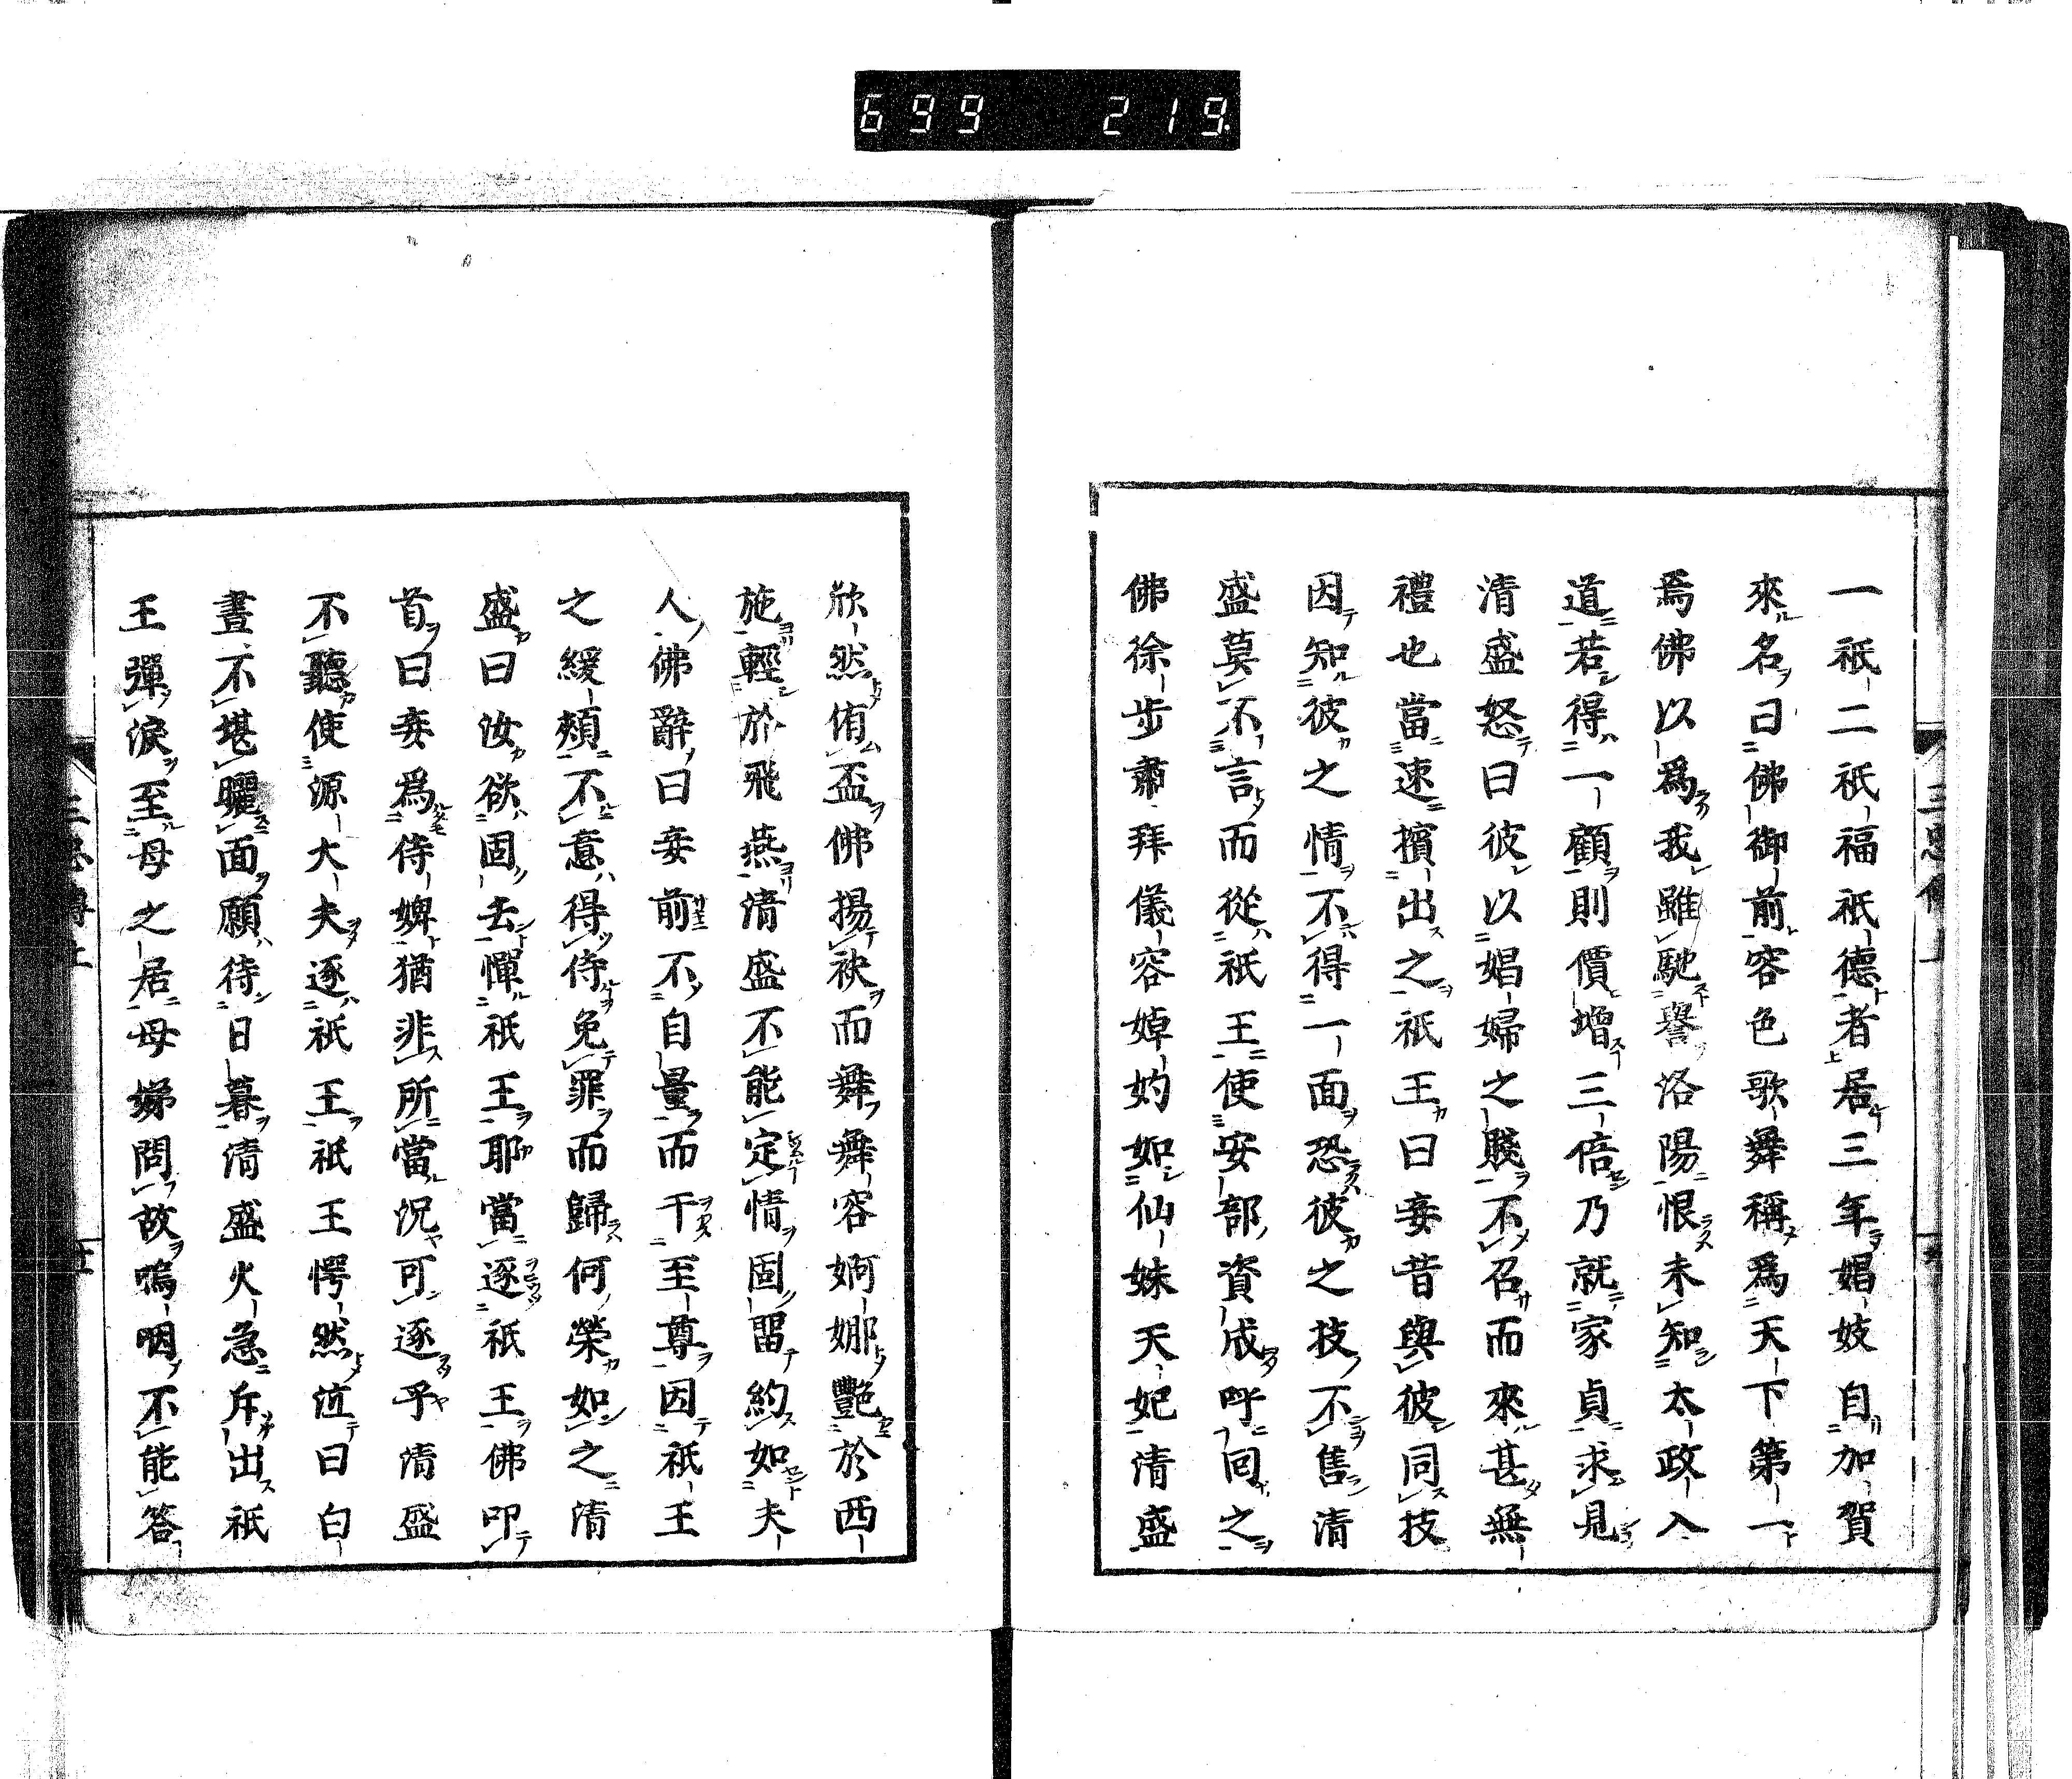 699 219.
一祇二祇福祇德者居三年娼妓自加賀
來名曰佛御前容色歌舞稱爲天下第一
焉佛以爲我雖馳譽洛陽恨未知太政入
道若得一顧則價增三倍乃就家貞求見
清盛怒曰彼以娼婦之賤不召而來甚無
禮也當速擯出之祇王曰妾昔與彼同技
因知彼之情不得一面恐彼之技不售清
盛莫不言而從祇王使安部資成呼回之
佛徐步肅拜儀容婥妁如仙妹天妃清盛
欣然侑盃佛揚袂而舞舞容婀娜艷於西
施輕於飛燕清盛不能定情固畱約如夫
人佛辭曰妾前不自量而干至尊因祇王
之緩頰不意得侍免罪而歸何榮如之清
盛曰汝欲固去憚祇王耶當逐祇王佛叩
首曰妾爲侍婢猶非所當況可逐乎清盛
不聽使源大夫逐祇王祇王愕然泣曰白
晝不堪曬面願待日暮清盛火急斥出祇
王彈淚至母之居母娣問故嗚咽不能答